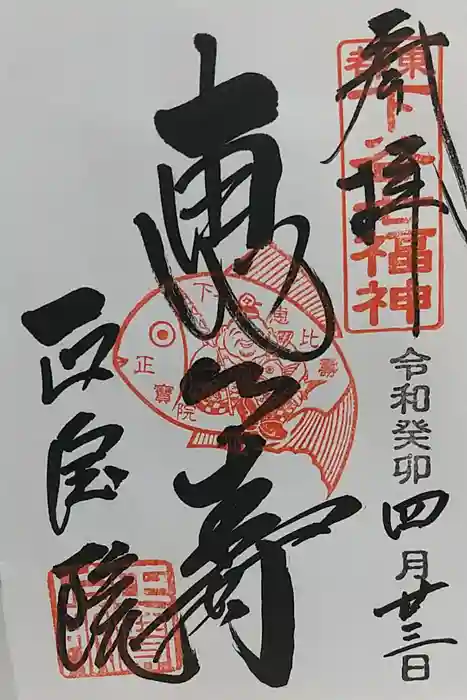 奉拝
東都
下谷七福神
令和癸卯四月廿三日
恵比寿
恵比壽
下
正寶院
正宝院